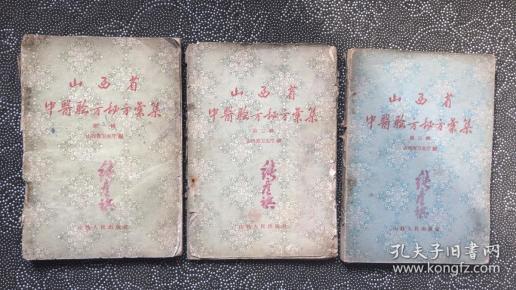 山西省
中醫驗方秘方彙集
山西省卫生厅編
山西人民出版社
山西省
中醫驗方秘方彙集
第二輯
山西省卫生厅編
山西人民出版社
山西省
中醫驗方秘方彙集
第三輯
山西省卫生厅編
山西人民出版社
孔夫子旧书网
www.kongfz.com